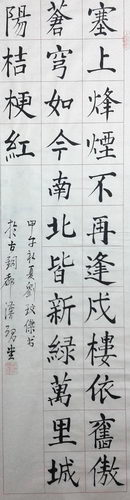 塞上烽煙不再逢戍樓依舊傲
蒼穹如今南北皆新綠萬里城
陽桔梗紅
甲午秋夏劉
傑書
於古銅